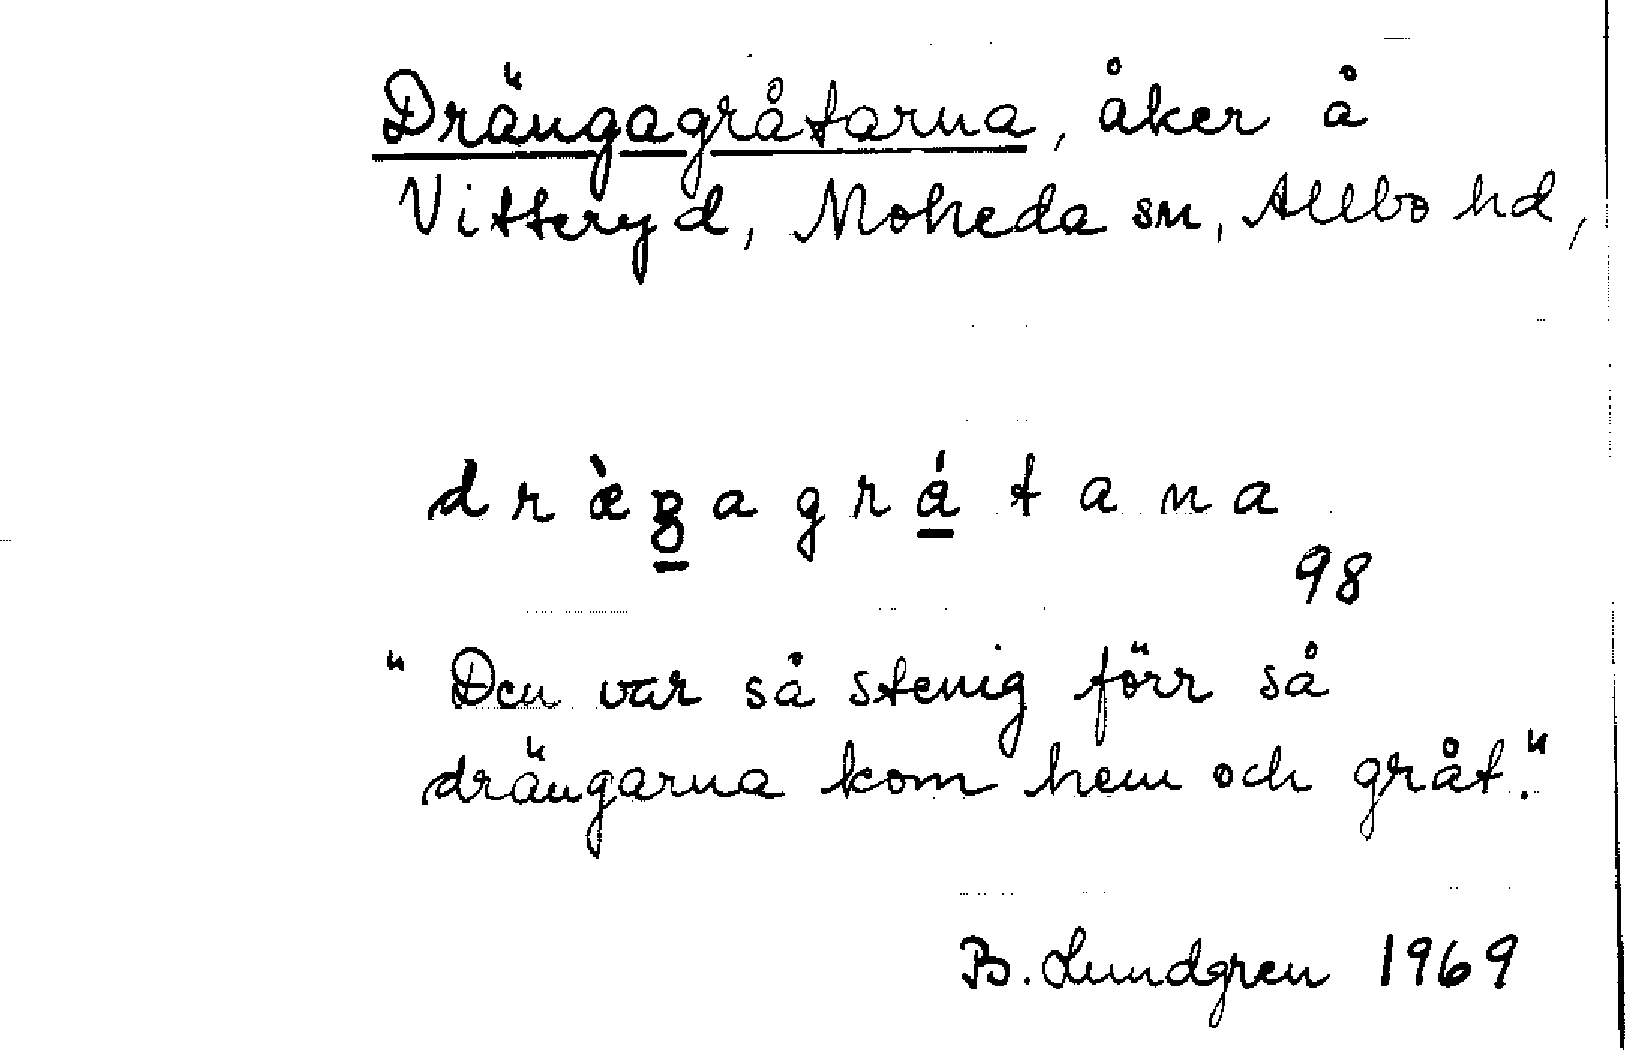 Drängagråtarna, åker å
Vitteryd, Moheda sn, Allbo hd,
98
"Den var så stenig förr så
drängarna kom hem och gråt."
B. Lundgren 1969